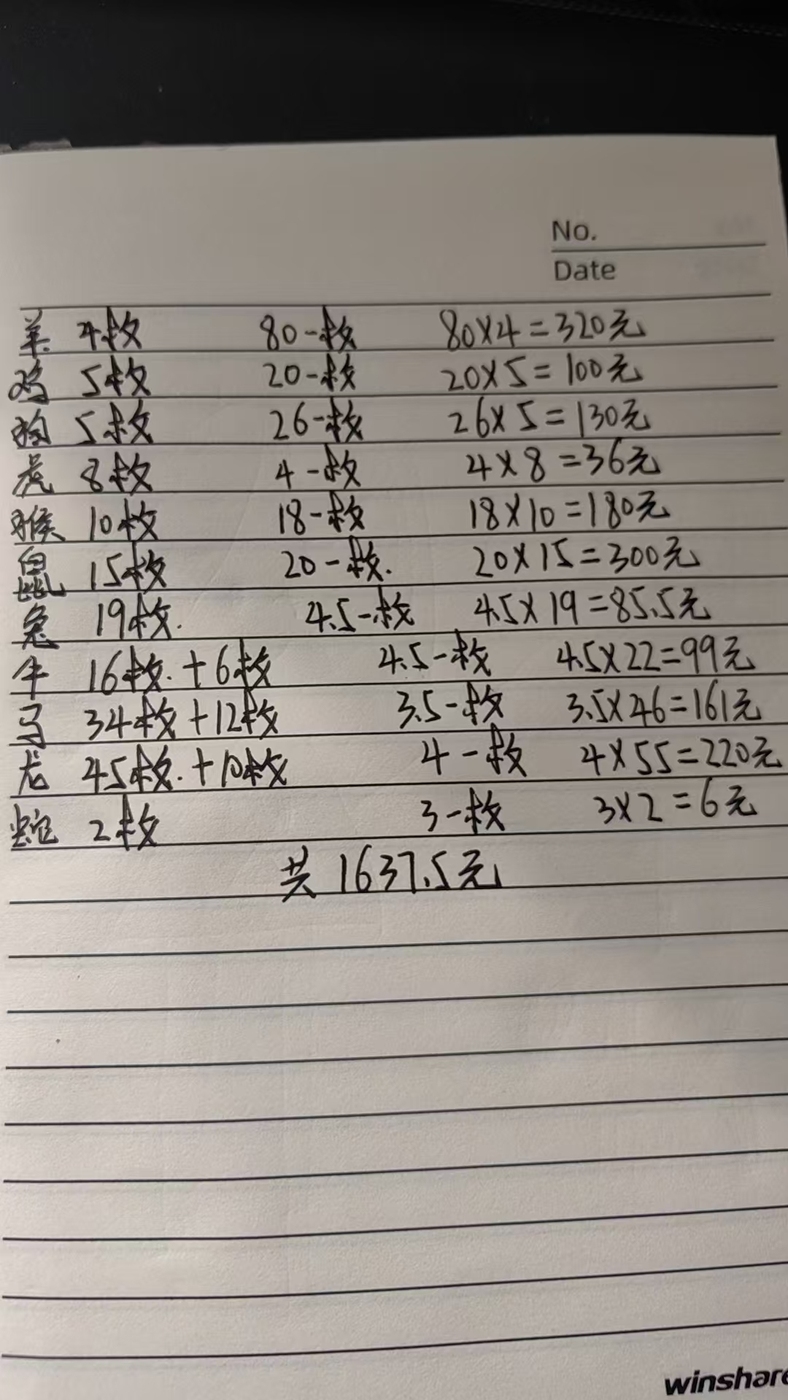 No.
Date
羊 4枚 80一枚 80×4=320元
鸡 5枚 20一枚 20×5=100元
狗 5枚 26一枚 26×5=130元
虎 8枚 4一枚 4×8=36元
猴 10枚 18一枚 18×10=180元
鼠 15枚 20一枚. 20×15=300元
兔 19枚. 4.5一枚 4.5×19=85.5元
牛 16枚.+6枚 4.5一枚 4.5×22=99元
马 34枚+12枚 3.5一枚 3.5×46=161元
龙 45枚.+10枚 4一枚 4×55=220元
蛇 2枚 3一枚 3×2=6元
共 1637.5元
winshare